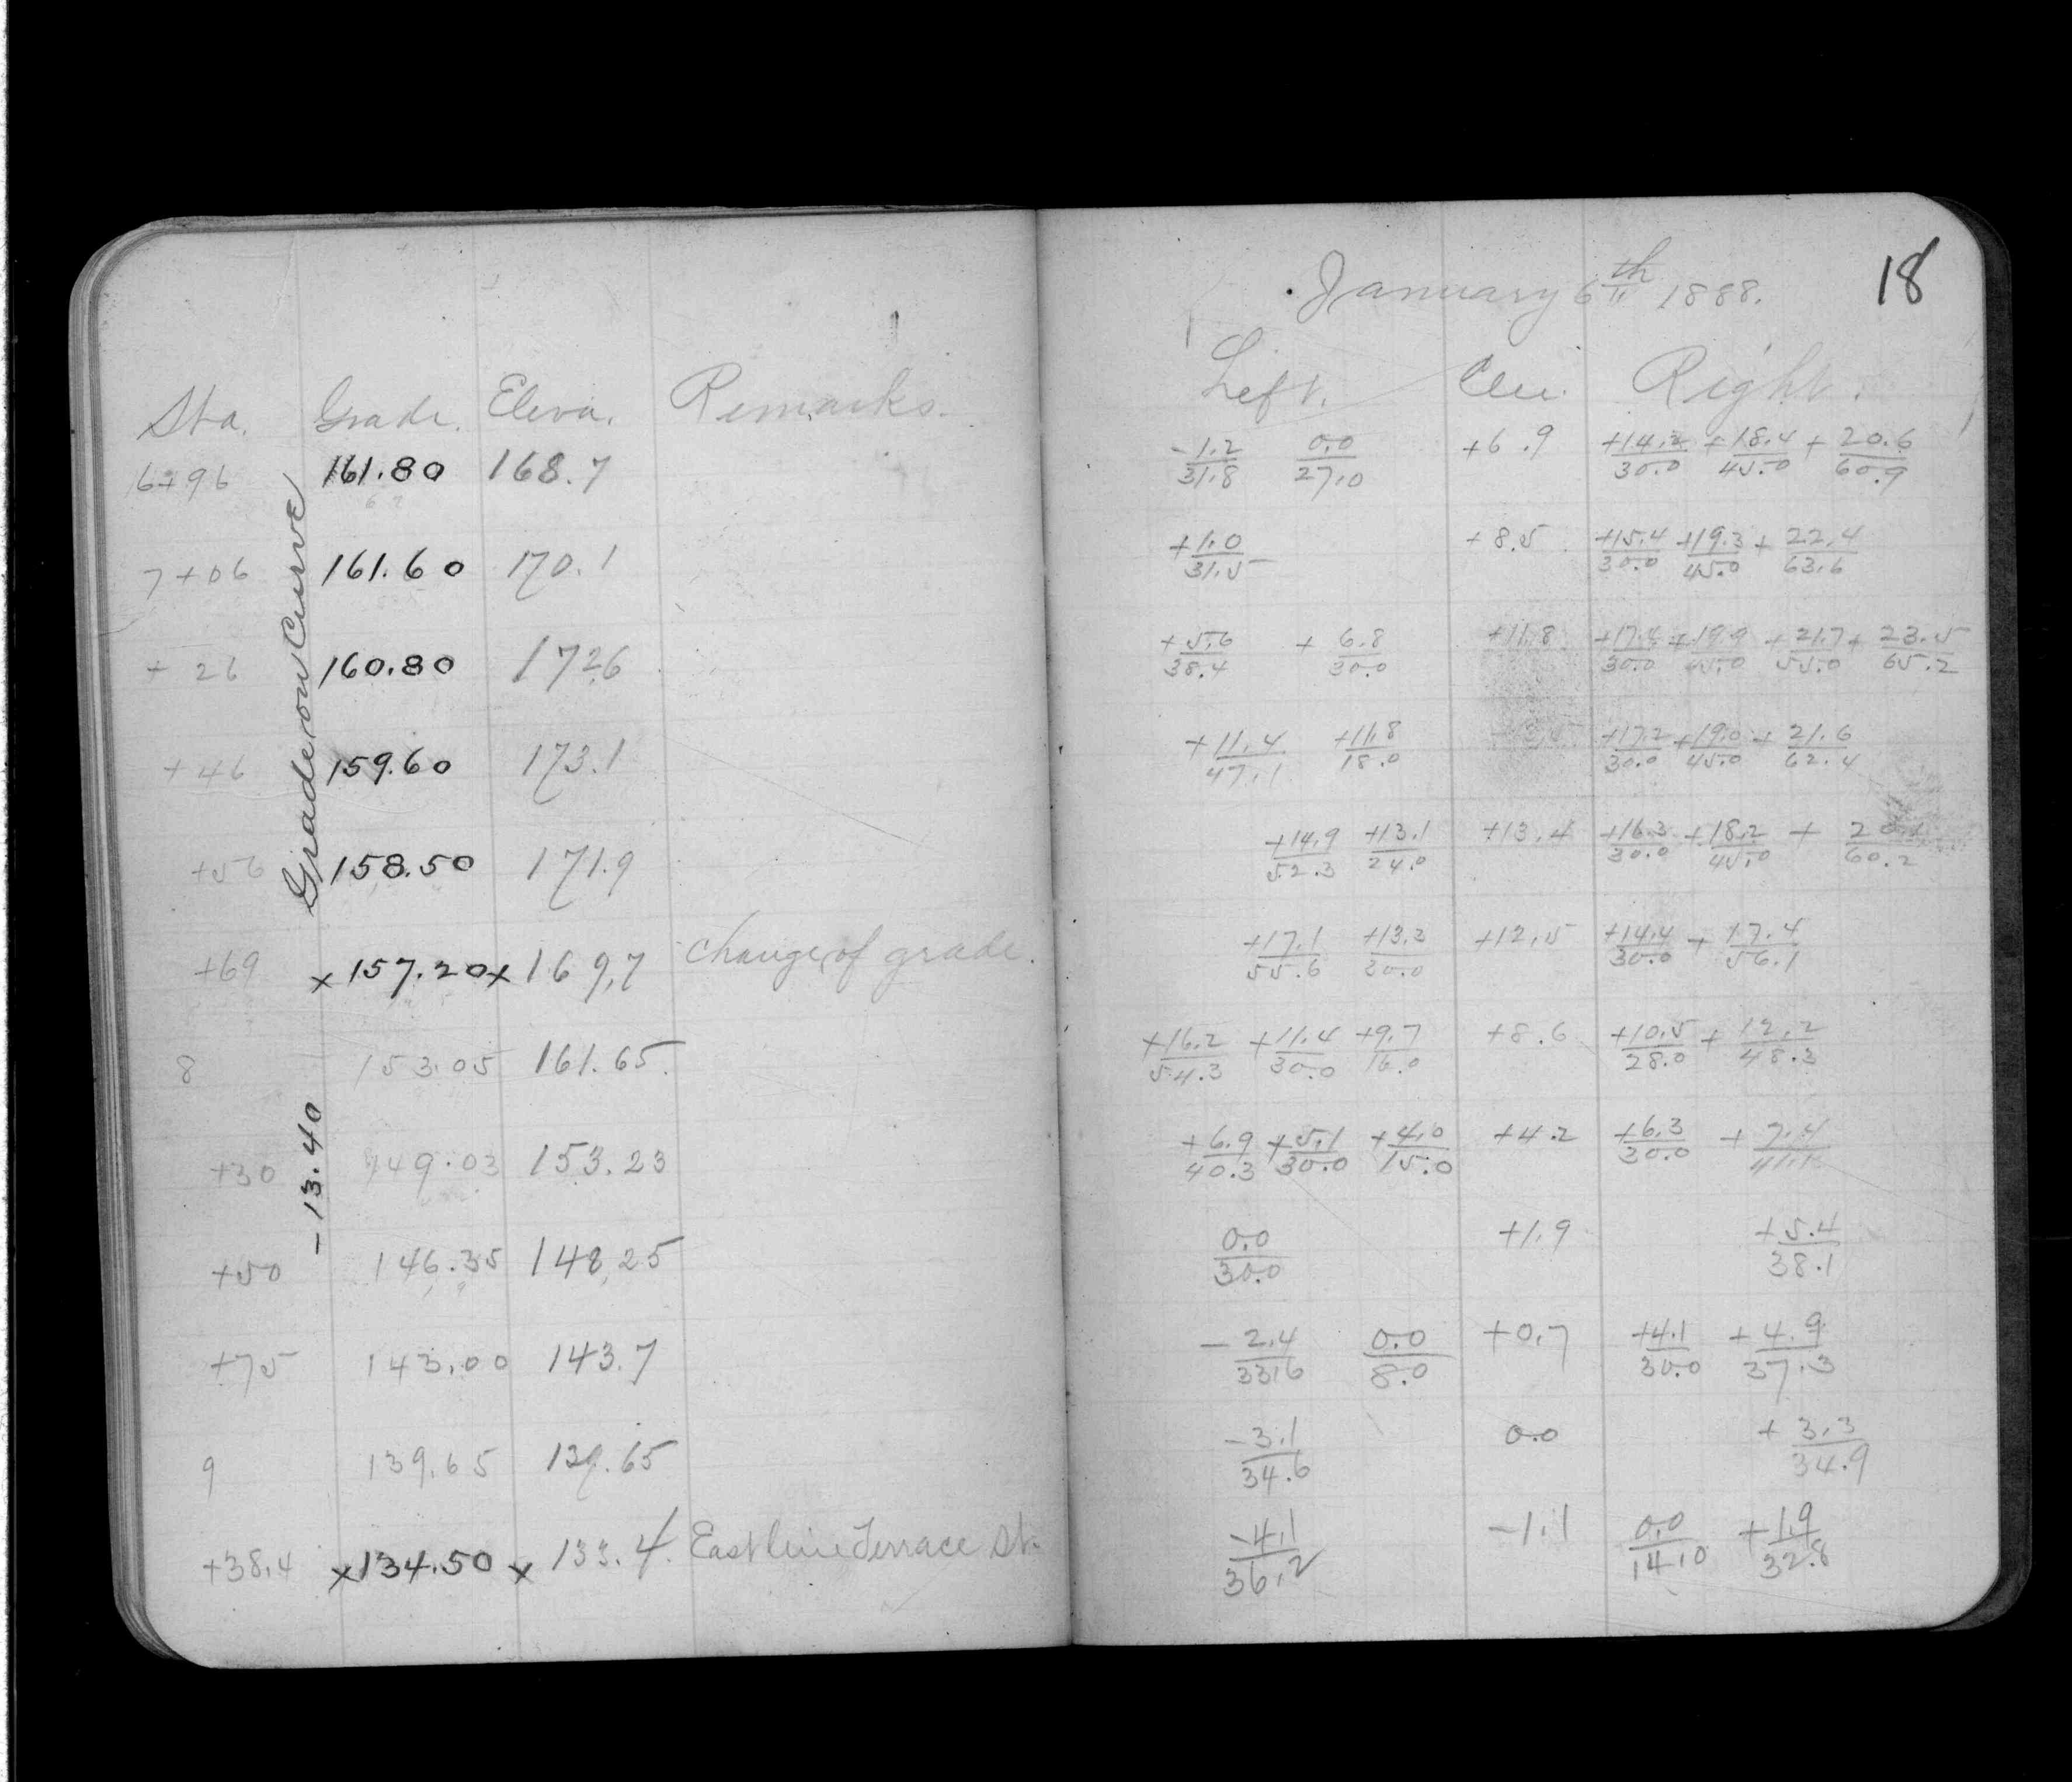 January 6th 1888.
18
Sta. Grade. Eleva. Remarks. Left. Cen. Right.
6+96 161.80 168.7 -1.2/31.8 0.0/27.0 +6.9 +14.2/30.0 +18.4/45.0 +20.6/60.9
7+06 161.60 170.1 +1.0/31.5 +8.5 +15.4/30.0 +19.3/45.0 +22.4/63.6
+26 160.80 172.6 +5.6/38.4 +6.8/30.0 +11.8 +17.4/30.0 +19.9/45.0 +21.7/55.0 +23.5/65.2
+46 159.60 173.1 +11.4/47.1 +11.8/18.0 +17.2/30.0 +19.0/45.0 +21.6/62.4
+56 158.50 171.9 +14.9/52.3 +13.1/24.0 +13.4 +16.3/30.0 +18.2/45.0 + /60.2
Grade on Curve
+69 x 157.20 x 169.7 Change of grade. +17.1/55.6 +13.3/30.0 +12.5 +14.4/30.0 +17.4/56.1
8 153.05 161.65 +16.2/54.3 +11.4/30.0 +9.7/16.0 +8.6 +10.5/28.0 +12.2/48.3
+30 149.03 153.23 +6.9/40.3 +5.1/30.0 +4.0/15.0 +4.2 +6.3/30.0 +7.4/41.1
-13.40
+50 146.35 148.25 0.0/30.0 +1.9 +5.4/38.1
+75 143.00 143.7 -2.4/33.6 0.0/8.0 +0.7 +4.1/30.0 +4.9/37.3
9 139.65 139.65 -3.1/34.6 0.0 +3.3/34.9
+38.4 x 134.50 x 133.4 East line Terrace St. -4.1/36.2 -1.1 0.0/14.0 +1.9/32.8